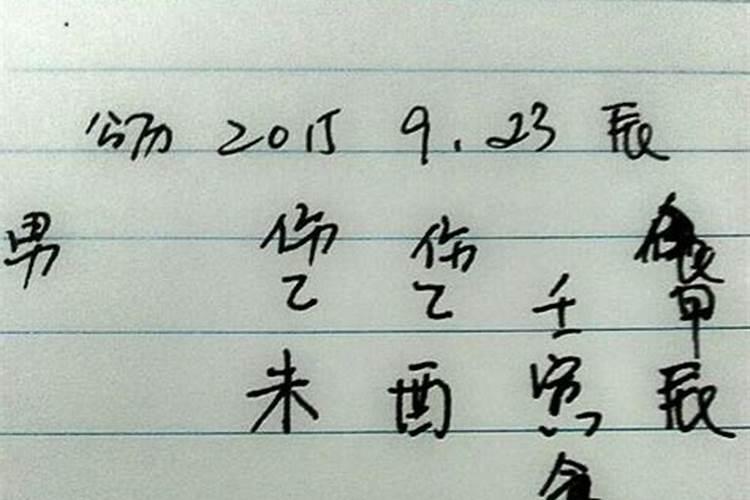 公历 2015 9.23 辰
男 伤 伤 食
乙 乙 壬 甲
未 酉 寅 辰
食